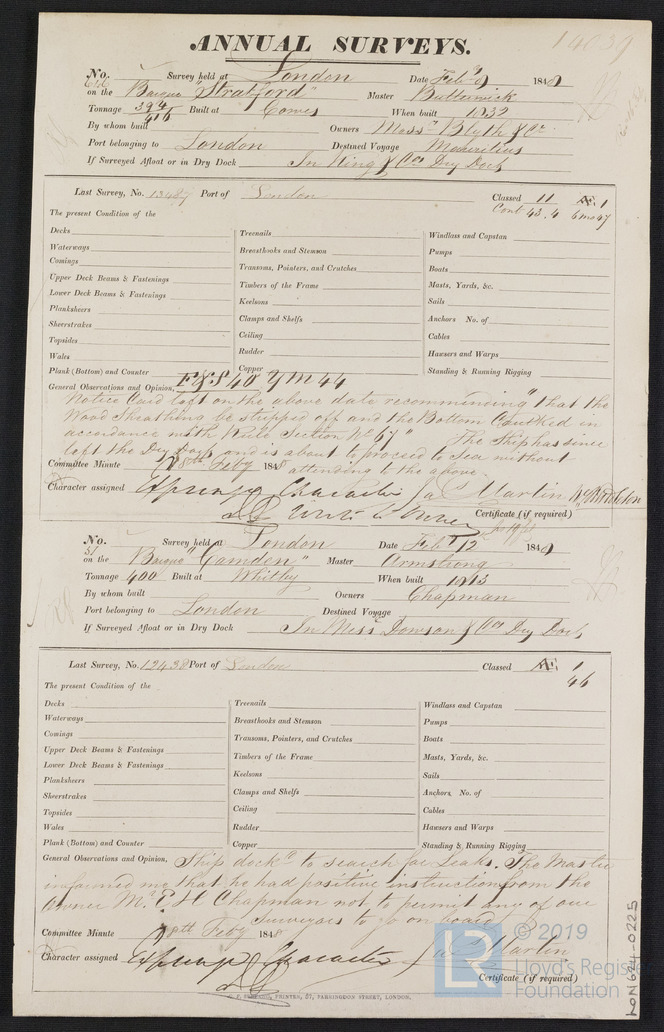 14039
ANNUAL SURVEYS.
No. Survey held at London Date Feby 9 1848
on the Barque "Stratford" Master Butterwick
Tonnage 394/416 Built at Cowes When built 1832
By whom built Owners Messrs Blyth & Co
Port belonging to London Destined Voyage Mauritius
If Surveyed Afloat or in Dry Dock In King & Cos Dry Dock
Last Survey, No. 13487 Port of London Classed 11 Æ. 1
Cont 43. 4 6mo 47
The present Condition of the
Decks
Waterways
Comings
Upper Deck Beams & Fastenings
Lower Deck Beams & Fastenings
Planksheers
Sheerstrakes
Topsides
Wales
Plank (Bottom) and Counter
Treenails
Breasthooks and Stemson
Transoms, Pointers, and Crutches
Timbers of the Frame
Keelsons
Clamps and Shelfs
Ceiling
Rudder
Copper
Windlass and Capstan
Pumps
Boats
Masts, Yards, &c.
Sails
Anchors No. of
Cables
Hawsers and Warps
Standing & Running Rigging
General Observations and Opinion,
Notice Card left on the above date recommending "that the
Wood Sheathing be stripped off and the Bottom Caulked in
accordance with Rule Section No 67" The Ship has since
left the Dry Dock and is about to proceed to Sea without
attending to the above.
Committee Minute 18th Feby 1848
Character assigned Expunge Character Martin
Write to Owner
Certificate (if required)
No. Survey held at London Date Feby 12 1848
51 on the Barque "Camden" Master Armstrong
Tonnage 400 Built at Whitby When built 1813
By whom built Owners Chapman
Port belonging to London Destined Voyage
If Surveyed Afloat or in Dry Dock In Messrs Dowson & Cos Dry Dock
Last Survey, No. 12438 Port of London Classed Æ. 1
46
The present Condition of the
Decks
Waterways
Comings
Upper Deck Beams & Fastenings
Lower Deck Beams & Fastenings
Planksheers
Sheerstrakes
Topsides
Wales
Plank (Bottom) and Counter
Treenails
Breasthooks and Stemson
Transoms, Pointers, and Crutches
Timbers of the Frame
Keelsons
Clamps and Shelfs
Ceiling
Rudder
Copper
Windlass and Capstan
Pumps
Boats
Masts, Yards, &c.
Sails
Anchors, No. of
Cables
Hawsers and Warps
Standing & Running Rigging
General Observations and Opinion, Ship dockd to search for Leaks. The Master
informed me that he had positive instructions from the
Owner Mr. E H Chapman not to permit any of our
Surveyors to go on board
Committee Minute Feby 1848
Character assigned Expunge Character Martin
Certificate (if required)
PRINTER, 57, FARRINGDON STREET, LONDON.
LON 624-0225
© 2019
LR
Lloyd's Register
Foundation